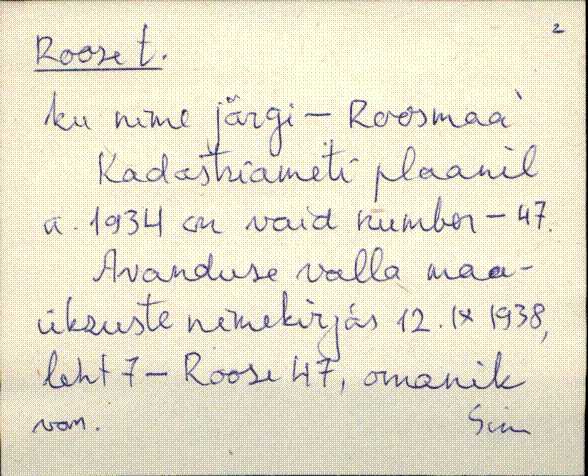 2
Roose t.
ku nime järgi – Roosmaa
Kadastriameti plaanil
a. 1934 on vaid number – 47.
Avanduse valla maa-
üksuste nimekirjas 12.IX 1938,
leht 7 – Roose 47, omanik
von.